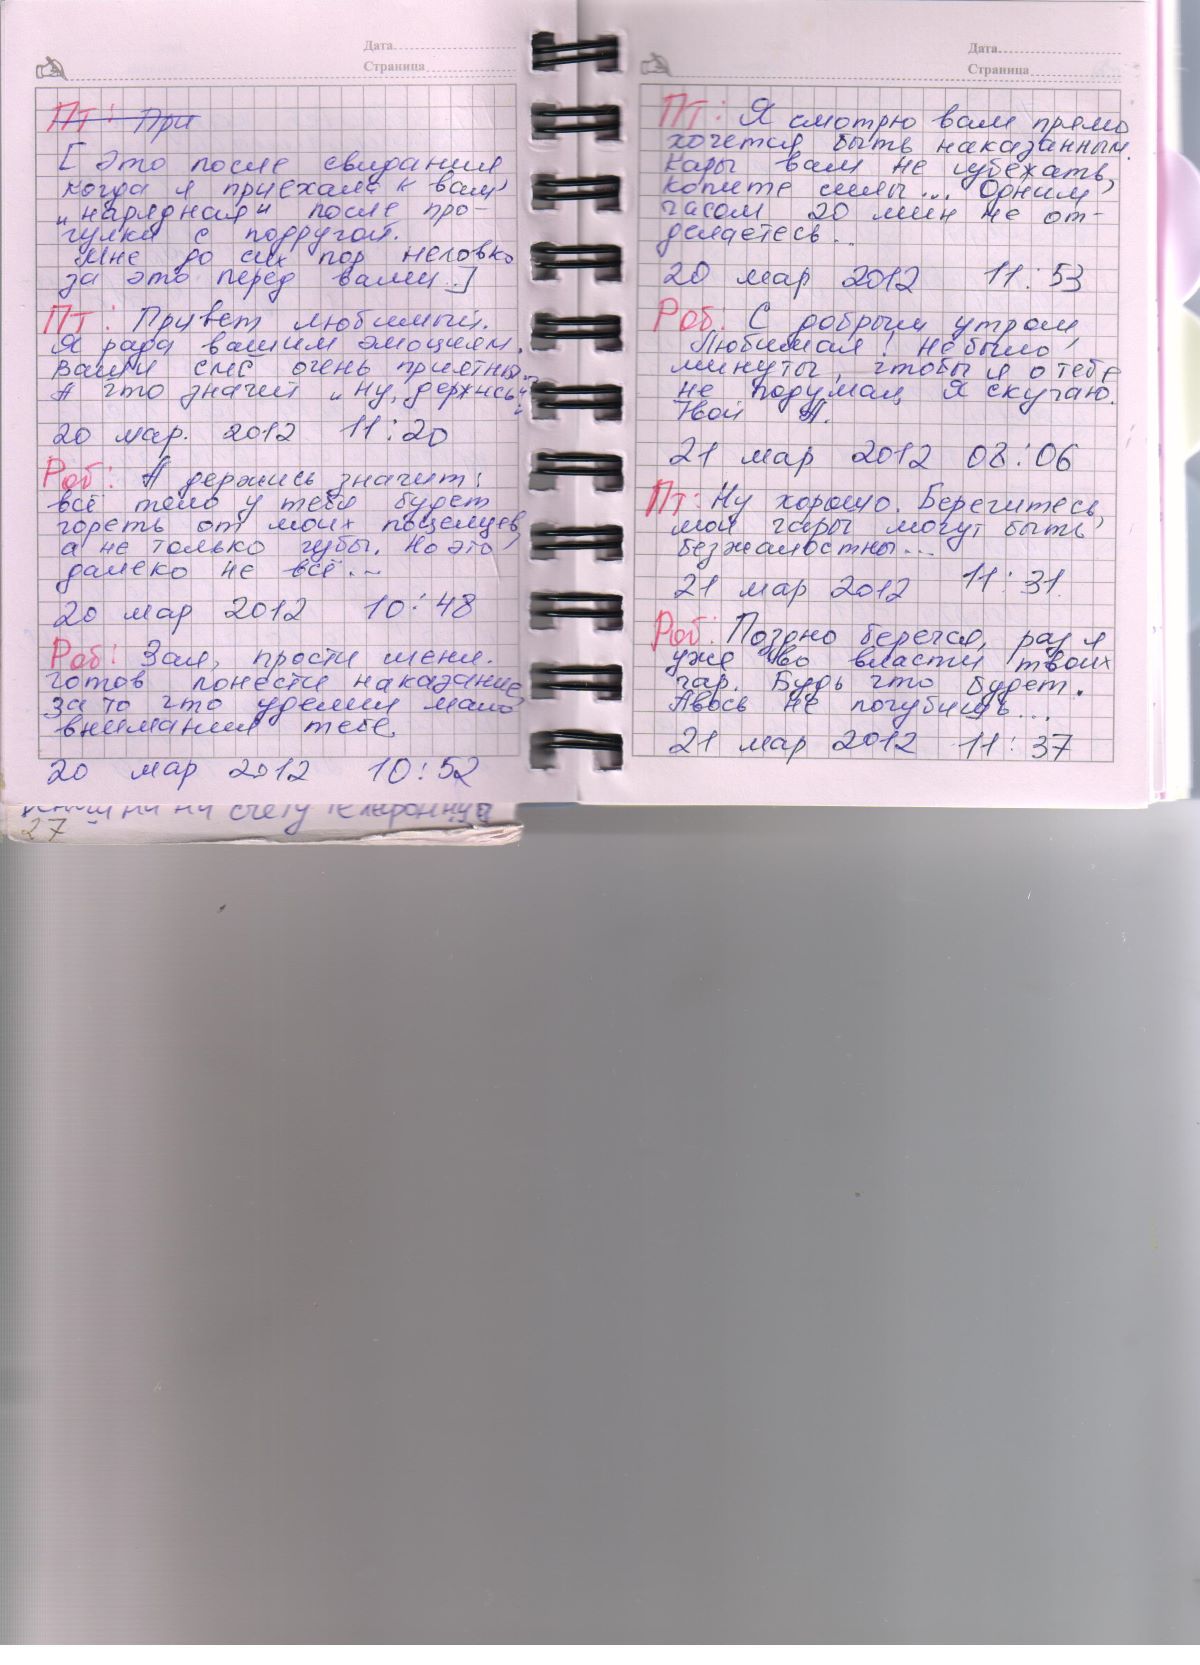 Дата
Страница
Пт: При
[ Это после свидания
когда я приехала к вам
„нарядная" после про-
гулки с подругой.
Мне до сих пор неловко
за это перед вами..]
Пт: Привет любимый.
Я рада вашим эмоциям.
Ваши смс очень приятны.
А что значит „ну, держись"?
20 мар. 2012 11:20
Роб: А держись значит:
всё тело у тебя будет
гореть от моих поцелуев,
а не только губы. Но это
далеко не всё...
20 мар 2012 10:48
Роб: Зая, прости меня.
Готов понести наказание,
за то что уделил мало
внимания тебе.
20 мар 2012 10:52
на счету телефонную
27
Дата
Страница
Пт: Я смотрю вам прямо
хочется быть наказанным.
Кары вам не избежать,
копите силы... Одним
часом 20 мин не от-
делаетесь...
20 мар 2012 11:53
Роб: С добрым утром
Любимая! Не было
минуты, чтобы я о тебе
не подумал. Я скучаю.
Твой А.
21 мар 2012 08:06
Пт: Ну хорошо. Берегитесь,
мои чары могут быть
безжалостны...
21 мар 2012 11:31.
Роб: Поздно беречся, раз я
уже во власти твоих
чар. Будь что будет.
Авось не погубишь...
21 мар 2012 11:37